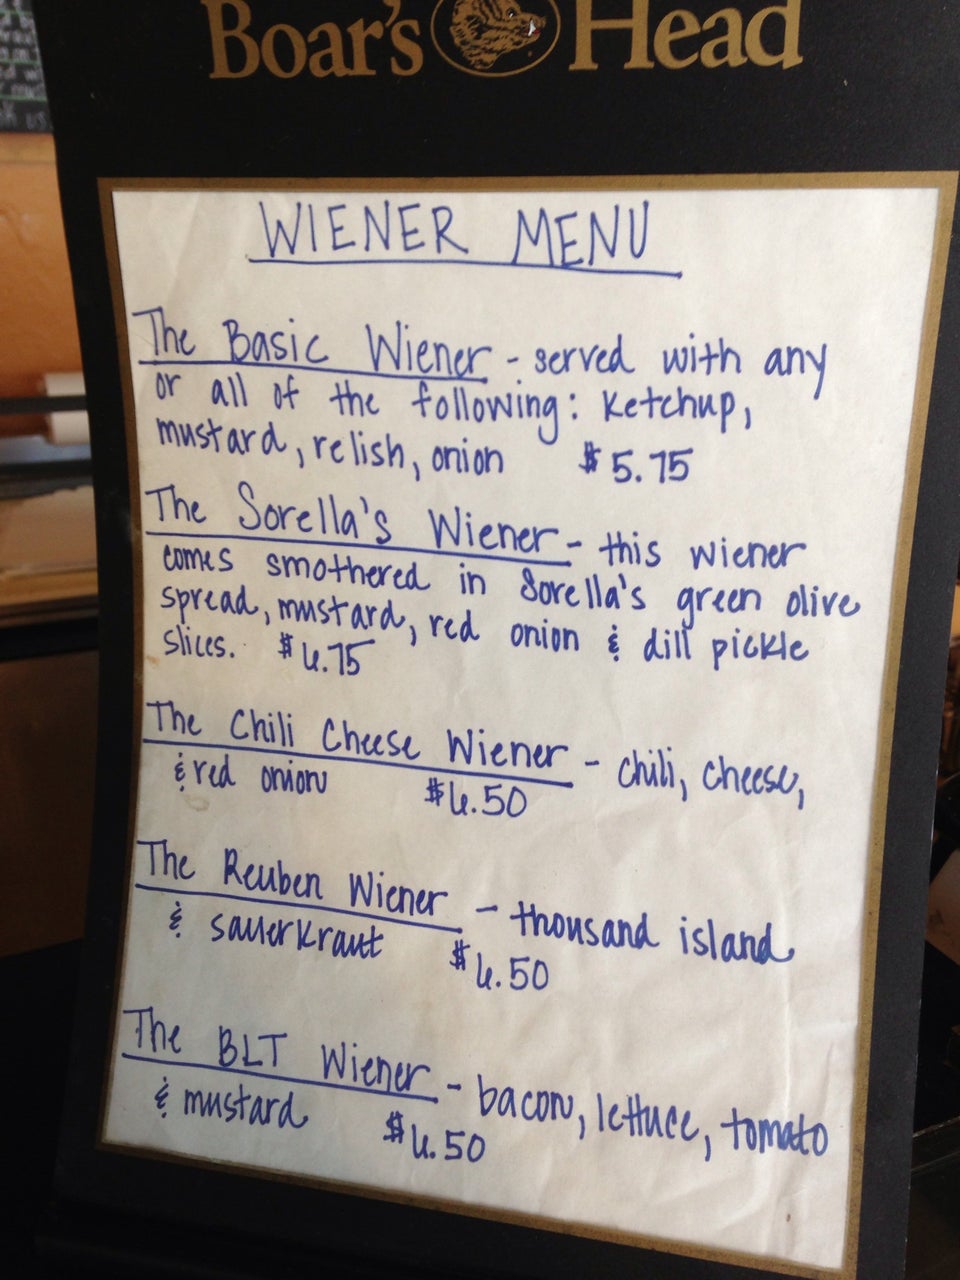 Boar's Head
WIENER MENU
The Basic Wiener - served with any
or all of the following: Ketchup,
mustard, relish, onion $5.75
The Sorella's Wiener - this wiener
comes smothered in Sorella's green olive
spread, mustard, red onion & dill pickle
slices. $6.75
The Chili Cheese Wiener - chili, cheese,
& red onion $6.50
The Reuben Wiener - thousand island
& sauerkraut $6.50
The BLT Wiener - bacon, lettuce, tomato
& mustard $6.50